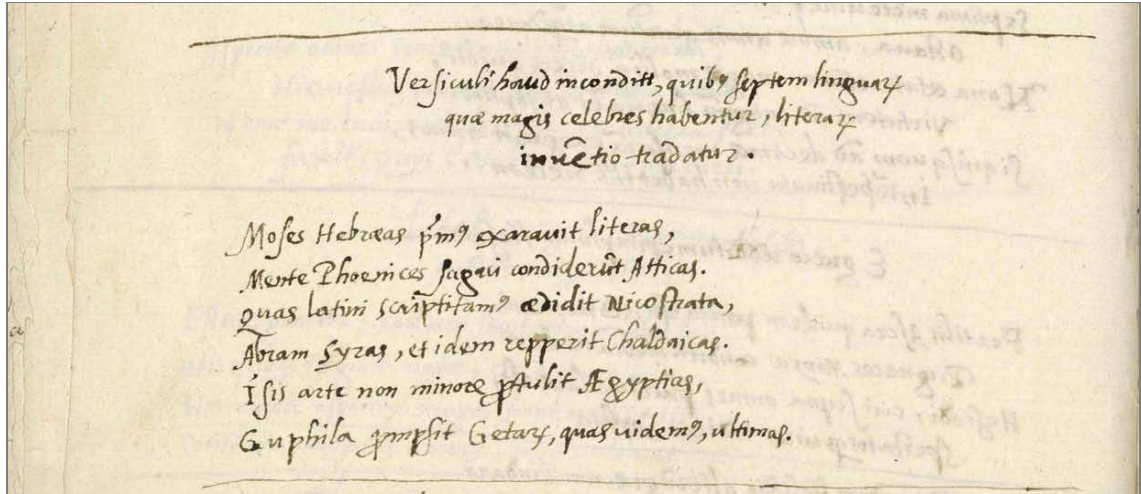 Versiculi haud inconditi, quibꝰ septem linguaꝝ
quæ magis celebres habentur, literaꝝ
invētio tradatur.
Moses Hebræas p̄mꝰ exaravit literas,
Mente Phoenices sagaci condiderūt Atticas.
Quas latini scriptitamꝰ ædidit Nicostrata,
Abram Syras, et idem repperit Chaldaicas.
Isis arte non minore ꝓtulit Ægyptias,
Guphila ꝓmpsit Getaꝝ, quas videmꝰ, ultimas.